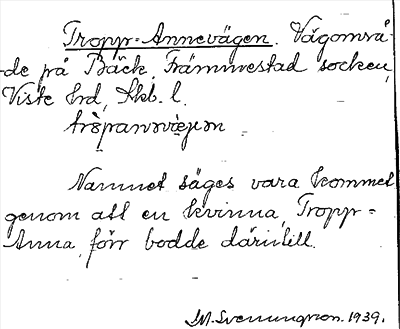 Tropp-Annevägen. Vägområ-
de på Bäck, Främmestad socken,
Viste hrd, Skb. l.

Namnet säges vara kommet
genom att en kvinna, Tropp-
Anna, förr bodde därintill.
M. Svenungson. 1939.